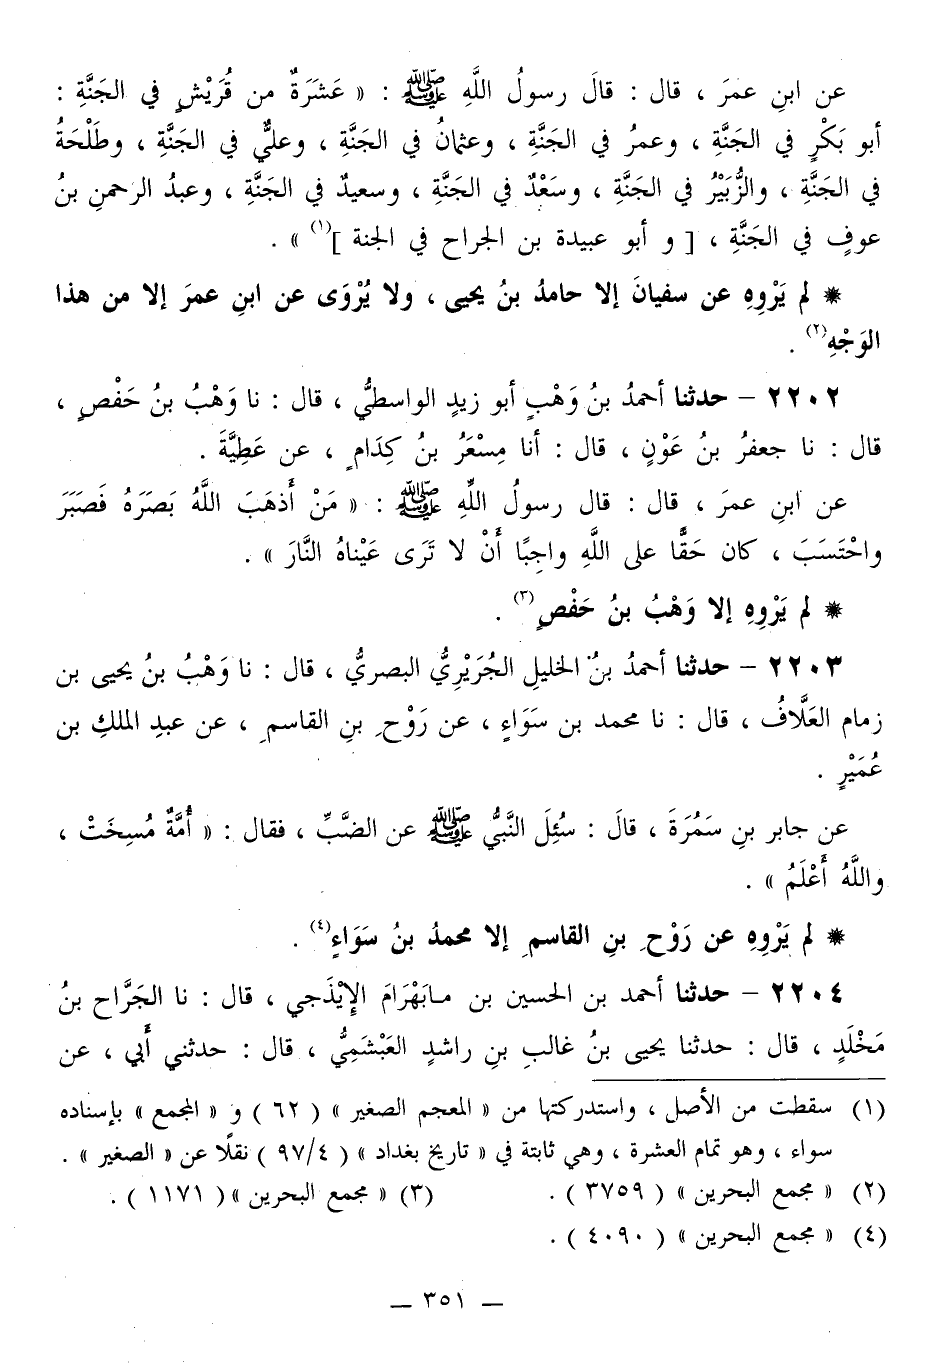 عن ابنِ عمرَ ، قال : قالَ رسولُ اللَّهِ ﷺ : « عَشَرَةٌ من قُرَيْشٍ في الجَنَّةِ :
أبو بَكْرٍ في الجَنَّةِ ، وعمرُ في الجَنَّةِ ، وعثمانُ في الجَنَّةِ ، وعليٌّ في الجَنَّةِ ، وطَلْحَةُ
في الجَنَّةِ ، والزُّبَيْرُ في الجَنَّةِ ، وسَعْدٌ في الجَنَّةِ ، وسعيدٌ في الجَنَّةِ ، وعبدُ الرحمنِ بنُ
عوفٍ في الجَنَّةِ ، [ و أبو عبيدة بن الجراح في الجنة ](١) » .
* لم يَرْوِهِ عن سفيانَ إلا حامدُ بنُ يحيى ، ولا يُرْوَى عن ابنِ عمرَ إلا من هذا
الوَجْهِ(٢) .
٢٢٠٢ - حدثنا أحمدُ بنُ وَهْبٍ أبو زيدٍ الواسطيُّ ، قال : نا وَهْبُ بنُ حَفْصٍ ،
قال : نا جعفرُ بنُ عَوْنٍ ، قال : أنا مِسْعَرُ بنُ كِدَامٍ ، عن عَطِيَّةَ .
عن ابنِ عمرَ ، قال : قال رسولُ اللَّهِ ﷺ : « مَنْ أَذهَبَ اللَّهُ بَصَرَهُ فَصَبَرَ
واحْتَسَبَ ، كان حَقًّا على اللَّهِ واجِبًا أَنْ لا تَرَى عَيْناهُ النَّارَ » .
* لم يَرْوِهِ إلا وَهْبُ بنُ حَفْصٍ(٣) .
٢٢٠٣ - حدثنا أحمدُ بنُ الخليلِ الجُرَيْرِيُّ البصريُّ ، قال : نا وَهْبُ بنُ يحيى بن
زمام العَلَّافُ ، قال : نا محمد بن سَوَاءٍ ، عن رَوْحِ بنِ القاسمِ ، عن عبدِ الملكِ بن
عُمَيْرٍ .
عن جابر بنِ سَمُرَةَ ، قالَ : سُئِلَ النَّبيُّ ﷺ عن الضَّبِّ ، فقال : « أُمَّةٌ مُسِخَتْ ،
واللَّهُ أَعْلَمُ » .
* لم يَرْوِهِ عن رَوْحِ بنِ القاسمِ إلا محمدُ بنُ سَوَاءٍ(٤) .
٢٢٠٤ - حدثنا أحمد بن الحسين بن مابَهْرَامَ الإِيْذَجي ، قال : نا الجَرَّاح بنُ
مَخْلَدٍ ، قال : حدثنا يحيى بنُ غالبِ بنِ راشدٍ العَبْشَمِيُّ ، قال : حدثني أَبي ، عن
(١) سقطت من الأصل ، واستدركتها من « المعجم الصغير » ( ٦٢ ) و « المجمع » بإسناده
سواء ، وهو تمام العشرة ، وهي ثابتة في « تاريخ بغداد » ( ٩٧/٤ ) نقلًا عن « الصغير » .
(٢) « مجمع البحرين » ( ٣٧٥٩ ) . (٣) « مجمع البحرين » ( ١١٧١ ) .
(٤) « مجمع البحرين » ( ٤٠٩٠ ) .
— ٣٥١ —